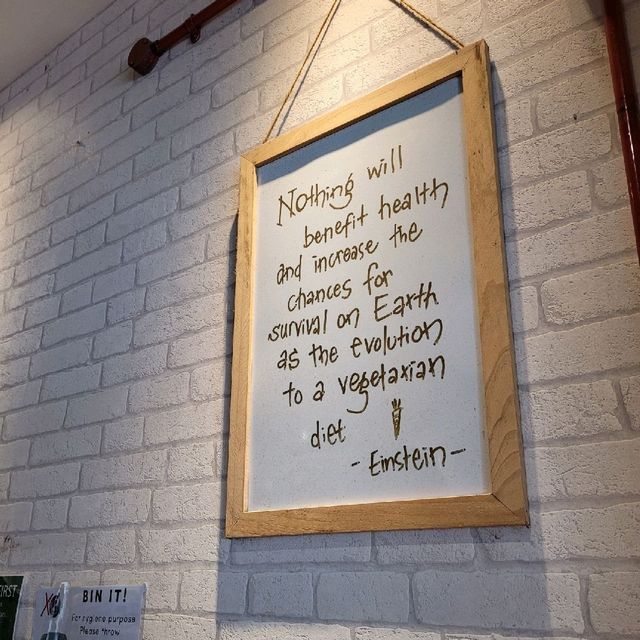 Nothing will
benefit health
and increase the
chances for
survival on Earth
as the evolution
to a vegetarian
diet
- Einstein -
BIN IT!
For hygiene purpose
Please throw